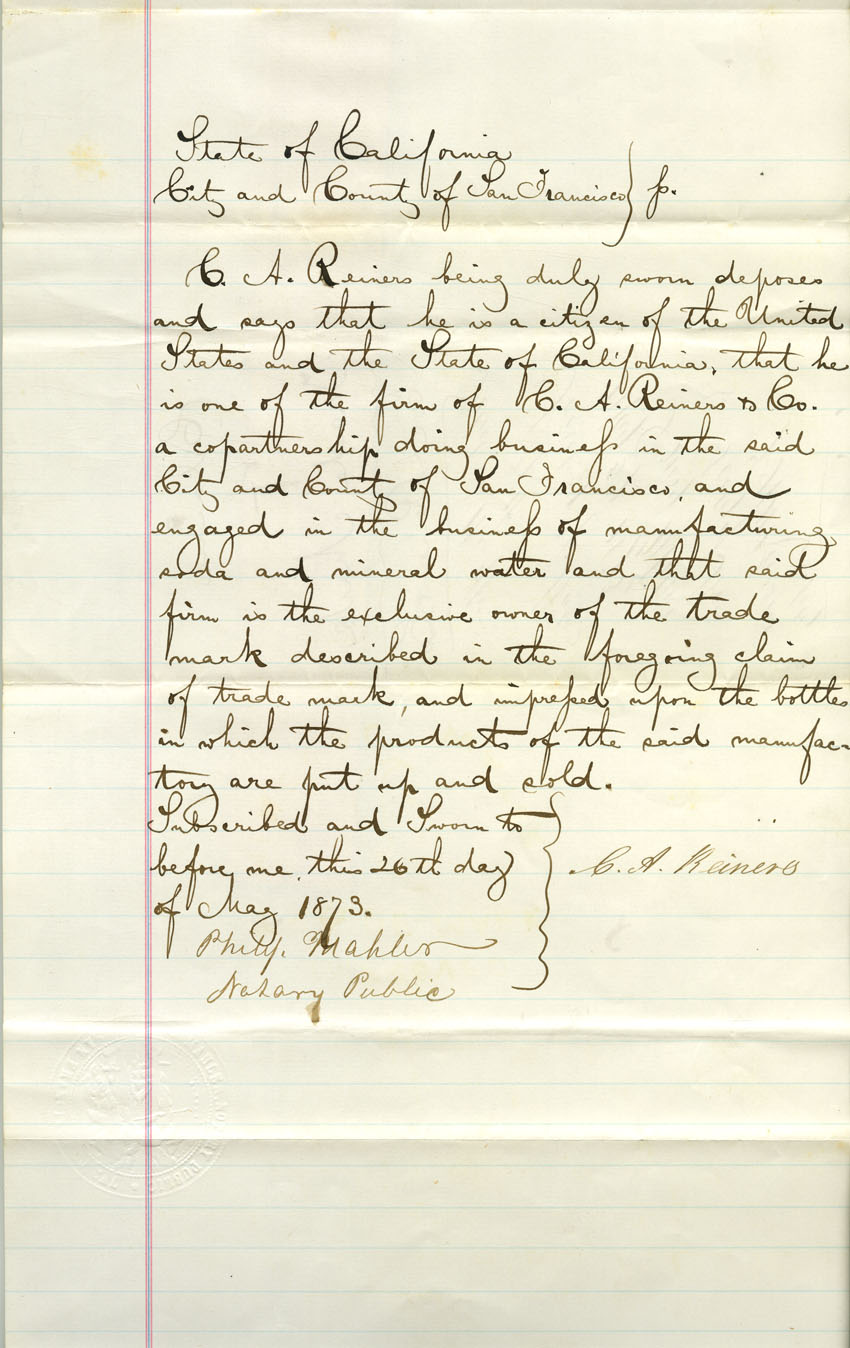 State of California
City and County of San Francisco } ss.
C. A. Reiners being duly sworn deposes
and says that he is a citizen of the United
States and the State of California, that he
is one of the firm of C. A. Reiners & Co.
a copartnership doing business in the said
City and County of San Francisco, and
engaged in the business of manufacturing
soda and mineral water and that said
firm is the exclusive owner of the trade
mark described in the foregoing claim
of trade mark, and impressed upon the bottles
in which the products of the said manufac-
tory are put up and sold.
Subscribed and Sworn to
before me, this 26th day } C. A. Reiners
of May 1873.
Philip. Mahler
Notary Public